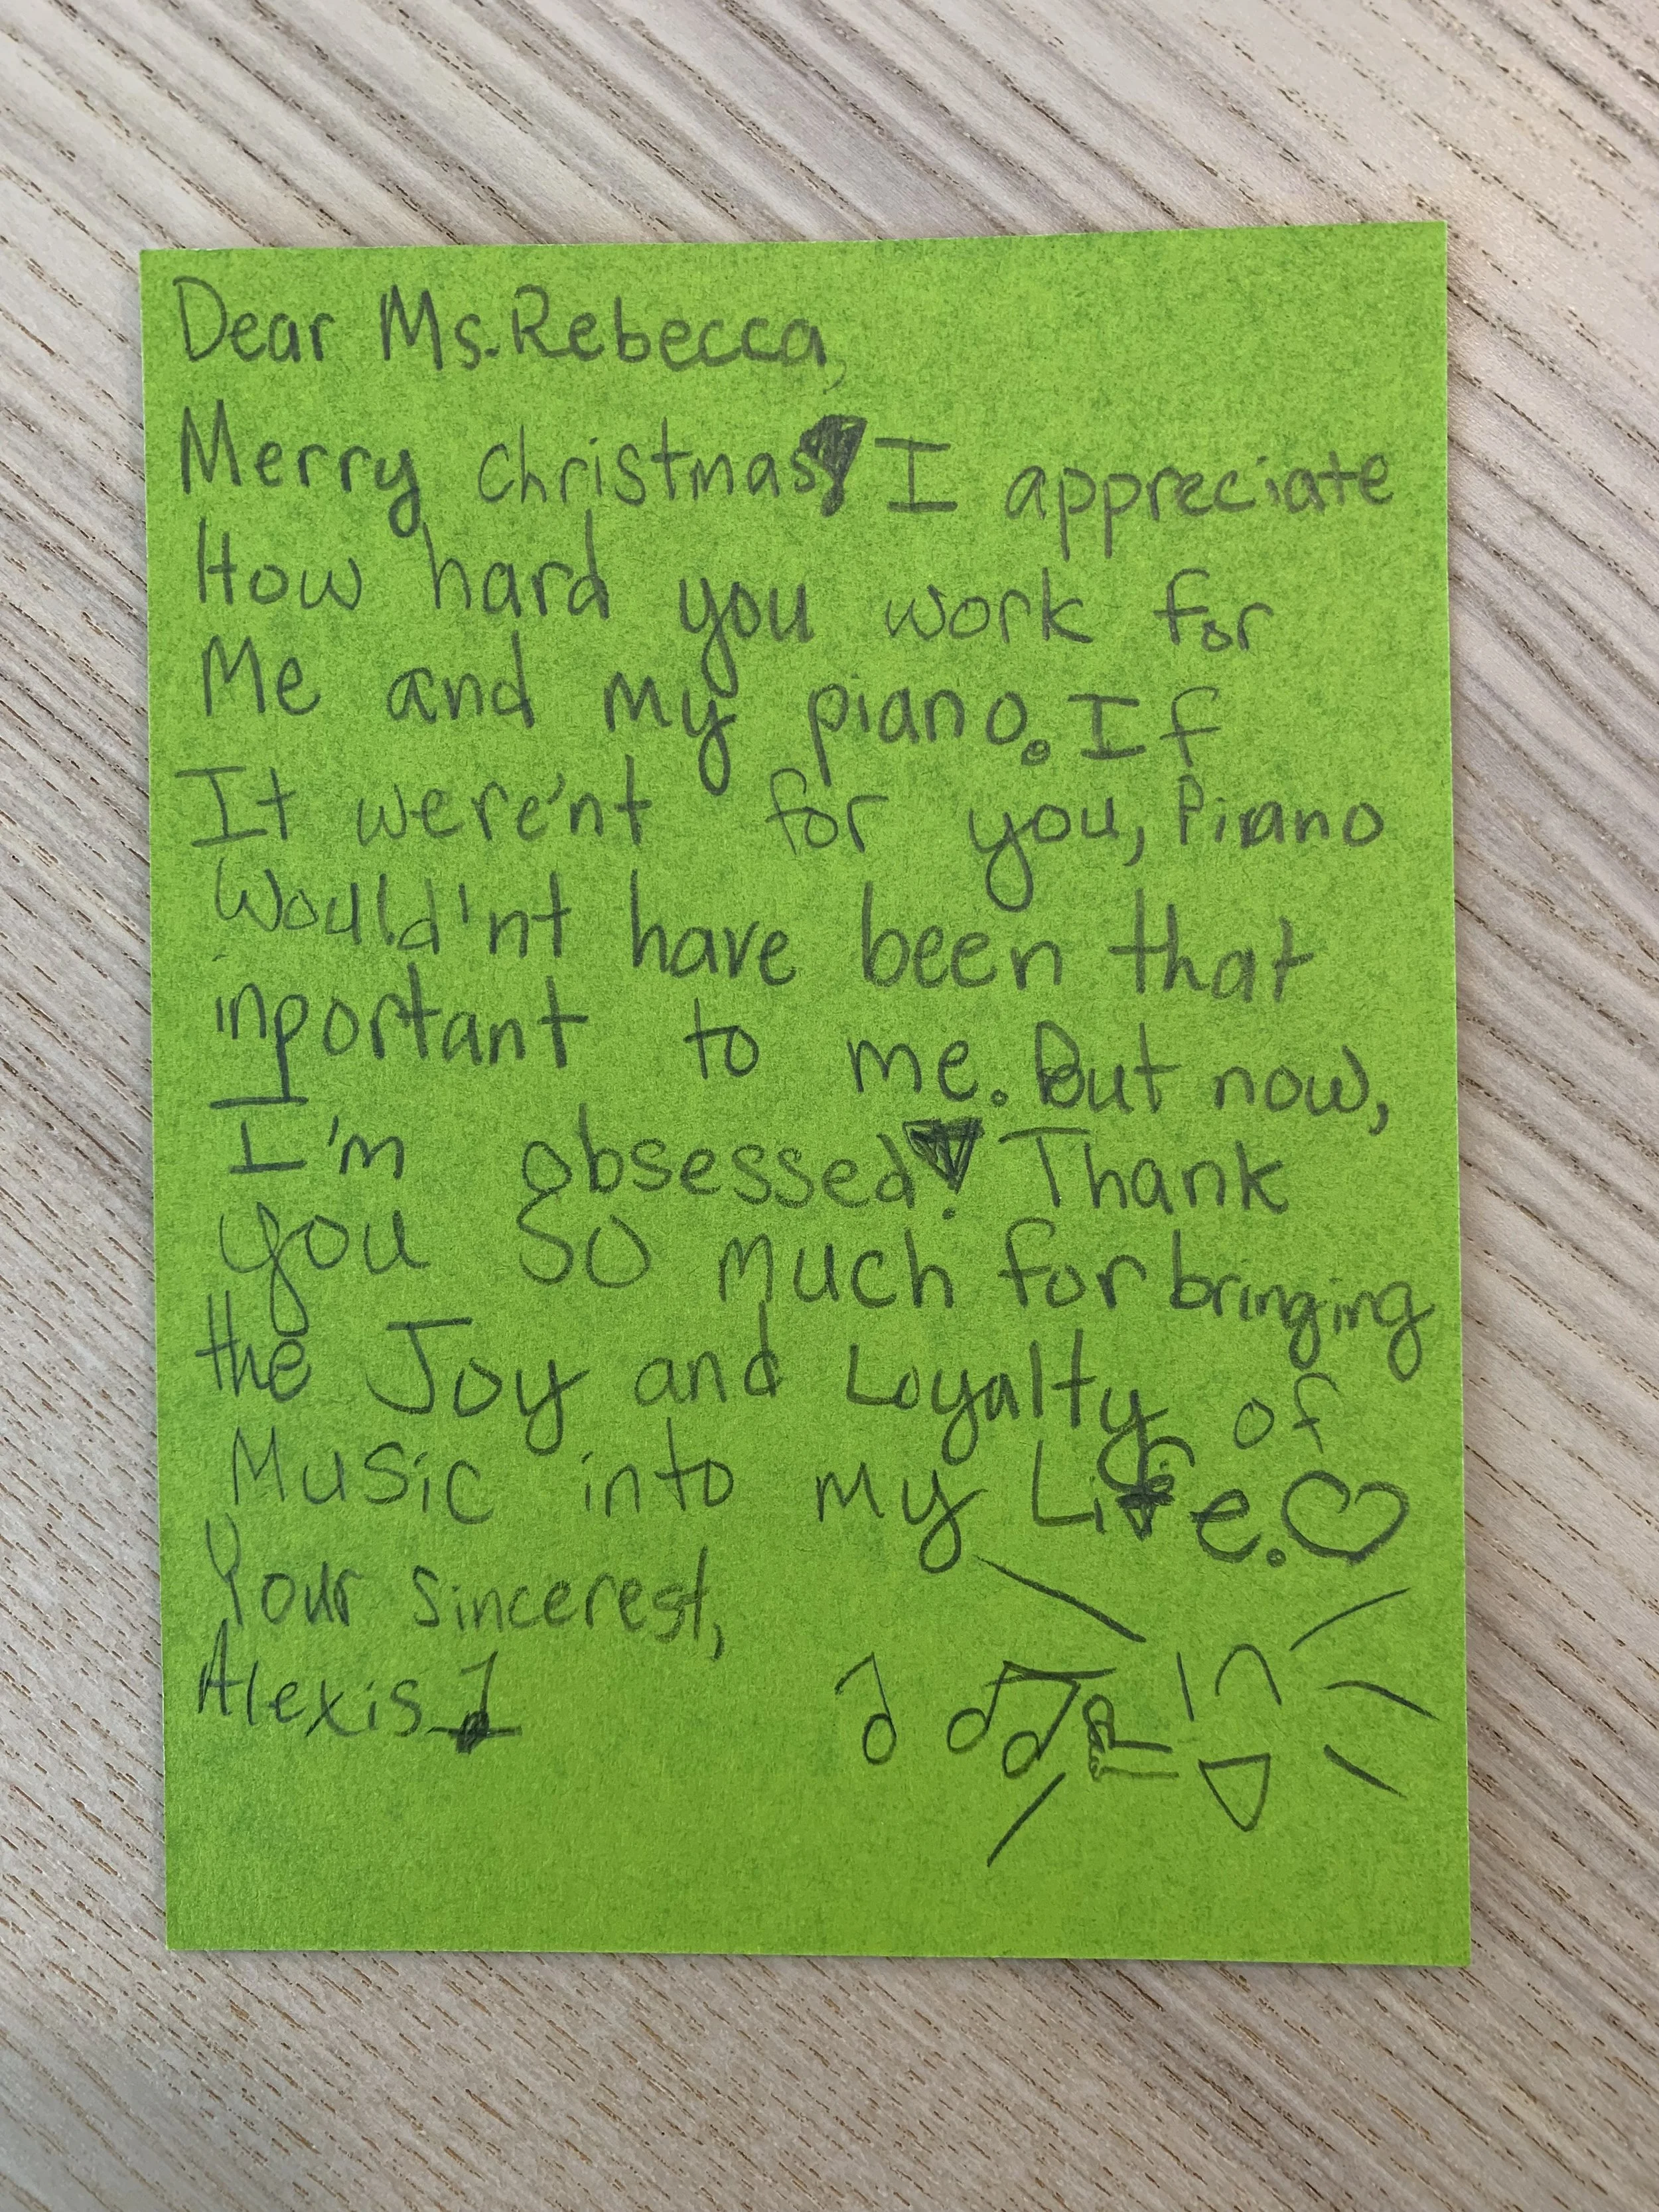 Dear Ms. Rebecca,
Merry christmas! I appreciate
How hard you work for
Me and my piano. If
It were'nt for you, Piano
Would'nt have been that
inportant to me. But now,
I'm obsessed! Thank
you so much for bringing
the Joy and Loyalty of
Music into my Life.
Your sincerest,
Alexis